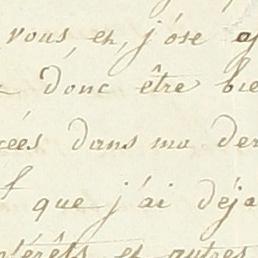 vous, et, j'ose
donc être bie
cées dans ma der
que j'ai déja
intérêts et autres